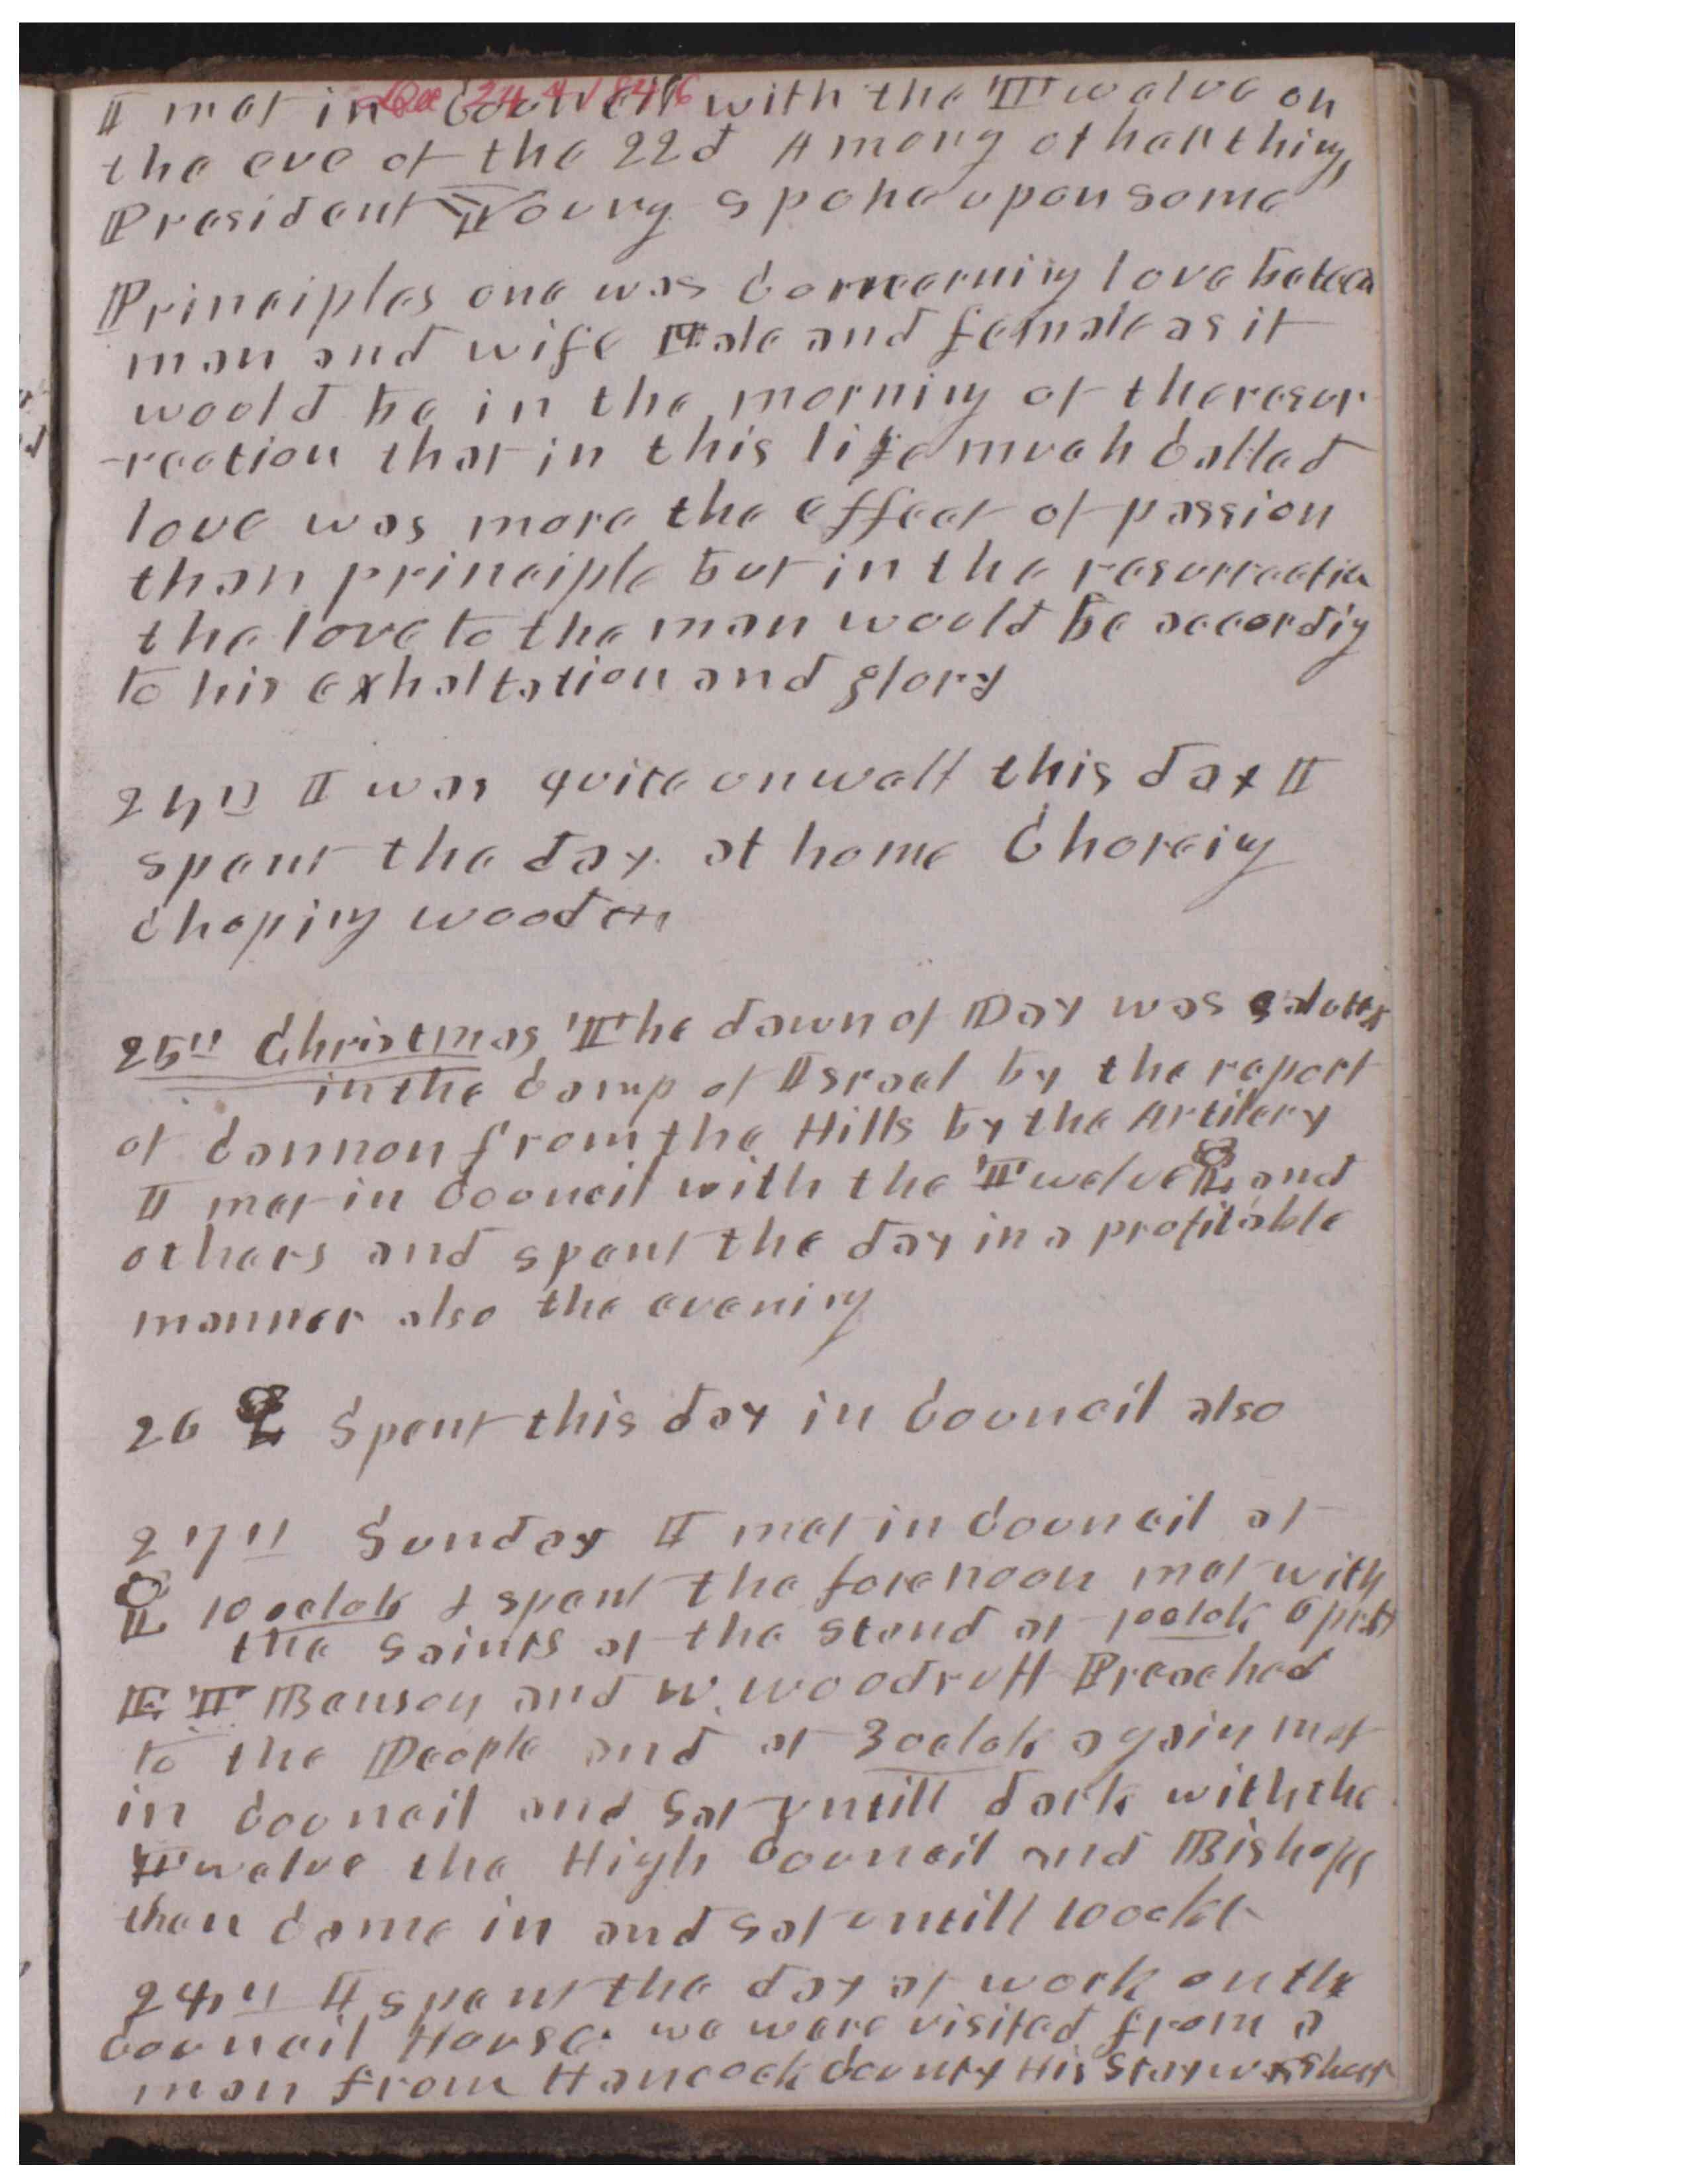 Dec 24th 1846
I met in Council with the Twelve on
the eve of the 22d Among other things
President Young spoke upon some
Principles one was Concerning love between
man and wife Male and female as it
would be in the morning of the resur-
-rection that in this life much Called
love was more the effect of passion
than principle but in the resurrection
the love to the man would be accordig
to his exhaltation and glory
24th I was quite unwell this day I
spent the day at home Choreing
choping wood &c
25th Christmas The dawn of Day was saluted
in the Camp of Israel by the report
of Cannon from the Hills by the Artilery
I met in Council with the Twelve and
others and spent the day in a profitable
manner also the evening
26 Spent this day in Council also
27th Sunday I met in Council at
10 oclok & spent the forenoon met with
the Saints at the stand at 1 oclok
E T Benson and W. Woodruff Preached
to the People and at 3 oclok again met
in Council and Sat untill dark with the
Twelve the High Council and Bishops
then Came in and Sat untill 10 ock
I spent the day at work on the
Council House. we were visited from a
man from Hancock County His Stay was short